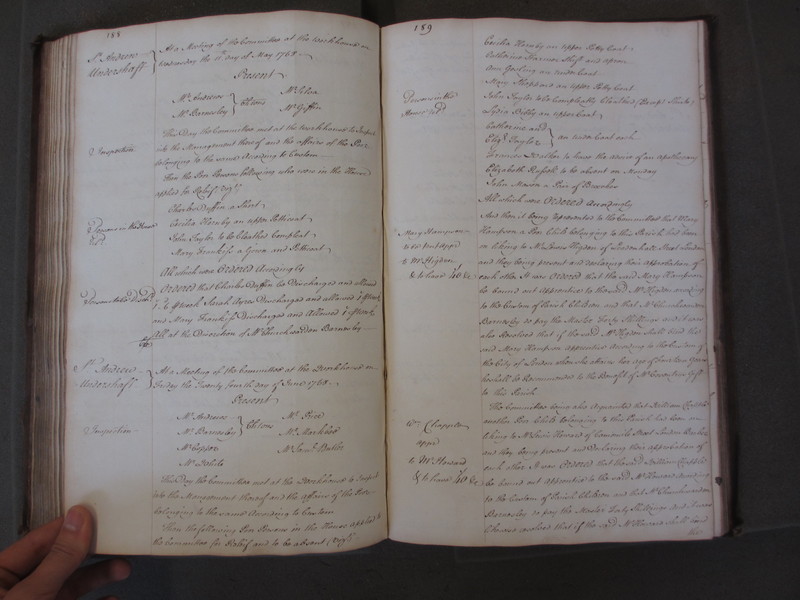 188
St. Andrew
Undershaft
At a Meeting of the Committee at the Workhouse on
Wednesday the 11th day of May 1768
Present
Mr. Andrews
Mr. Barnesley
Ch:Wns
Mr. Giffin
Inspection
This Day the Committee met at the Workhouse to Inspect
into the Management thereof and the affairs of the Poor
belonging to the same According to Custom
Then the Poor Persons following who were in the House
applied for Relief Vizt.
Charles Duffin a Shirt
Persons in the House
Cecilia Hornby an upper Petticoat
John Taylor to be Cloathed Compleat
Mary Frankiss a Gown and Petticoat
All which was Ordered Accordingly
Ordered that Charles Duffin be Discharged and allowed
Sarah Ayres Discharged and allowed
and Mary Frankiss Discharged and Allowed
All at the Discretion of Mr. Churchwarden Barnesley
St. Andrew
Undershaft
At a Meeting of the Committee at the Workhouse on
Friday the Twenty fourth day of June 1768
Present
Mr. Andrews
Mr. Barnesley
Ch:Wns
Mr. Price
Mr. Markland
Mr. Saml. Butler
Inspection
This Day the Committee met at the Workhouse to Inspect
into the Management thereof and the affairs of the Poor
belonging to the same According to Custom
Then the following Poor Persons in the House applied to
the Committee for Relief and to be absent Vizt.
189
Cecilia Hornby an upper Petty Coat
Catherine Shift and apron
Ann Gosling an under Coat
Mary Sheppard an upper Petty Coat
Persons in the
House
John Taylor to be Compleatly Cloathed (Except Shirts)
Lydia Bibby an upper Coat
Catherine and
Eliz. Taylor
an under Coat each
Walker to have the advice of an apothecary
Elizabeth Russell to be absent on Monday
John Mason a Pair of Breeches
All which were Ordered Accordingly
Mary Hampson
to be put appr.
to Mr. Higden
& to have 40s. &c.
And then it being represented to the Committee that Mary
Hampson a Poor Child belonging to this Parish had been
on liking to Mr. Higden of Leadenhall Street London
and they being present and declaring their approbation of
each other It was Ordered that the said Mary Hampson
be bound out apprentice to the said Mr. Higden according
to the Custom of Parish Children and that Mr. Churchwarden
Barnesley do pay the Master Forty Shillings and it was
also Resolved that if the said Mr. Higden shall bind the
said Mary Hampson apprentice According to the Custom of
the City of London when she attains her age of fourteen Years
he shall be Recommended to the Benefit of Gift
to this Parish
Wm. Chappell
appr.
to Mr. Howard
& to have 40s. &c.
The Committee being also Acquainted that William Chappell
another Poor Child belonging to this Parish had been on
liking to Mr. Howard of Street London
and they being present and Declaring their approbation of
each other It was Ordered that the said William Chappell
be bound out apprentice to the said Mr. Howard According
to the Custom of Parish Children and that Mr. Churchwarden
Barnesley do pay the Master Forty Shillings and it was
likewise resolved that if the said Mr. Howard shall bind
the